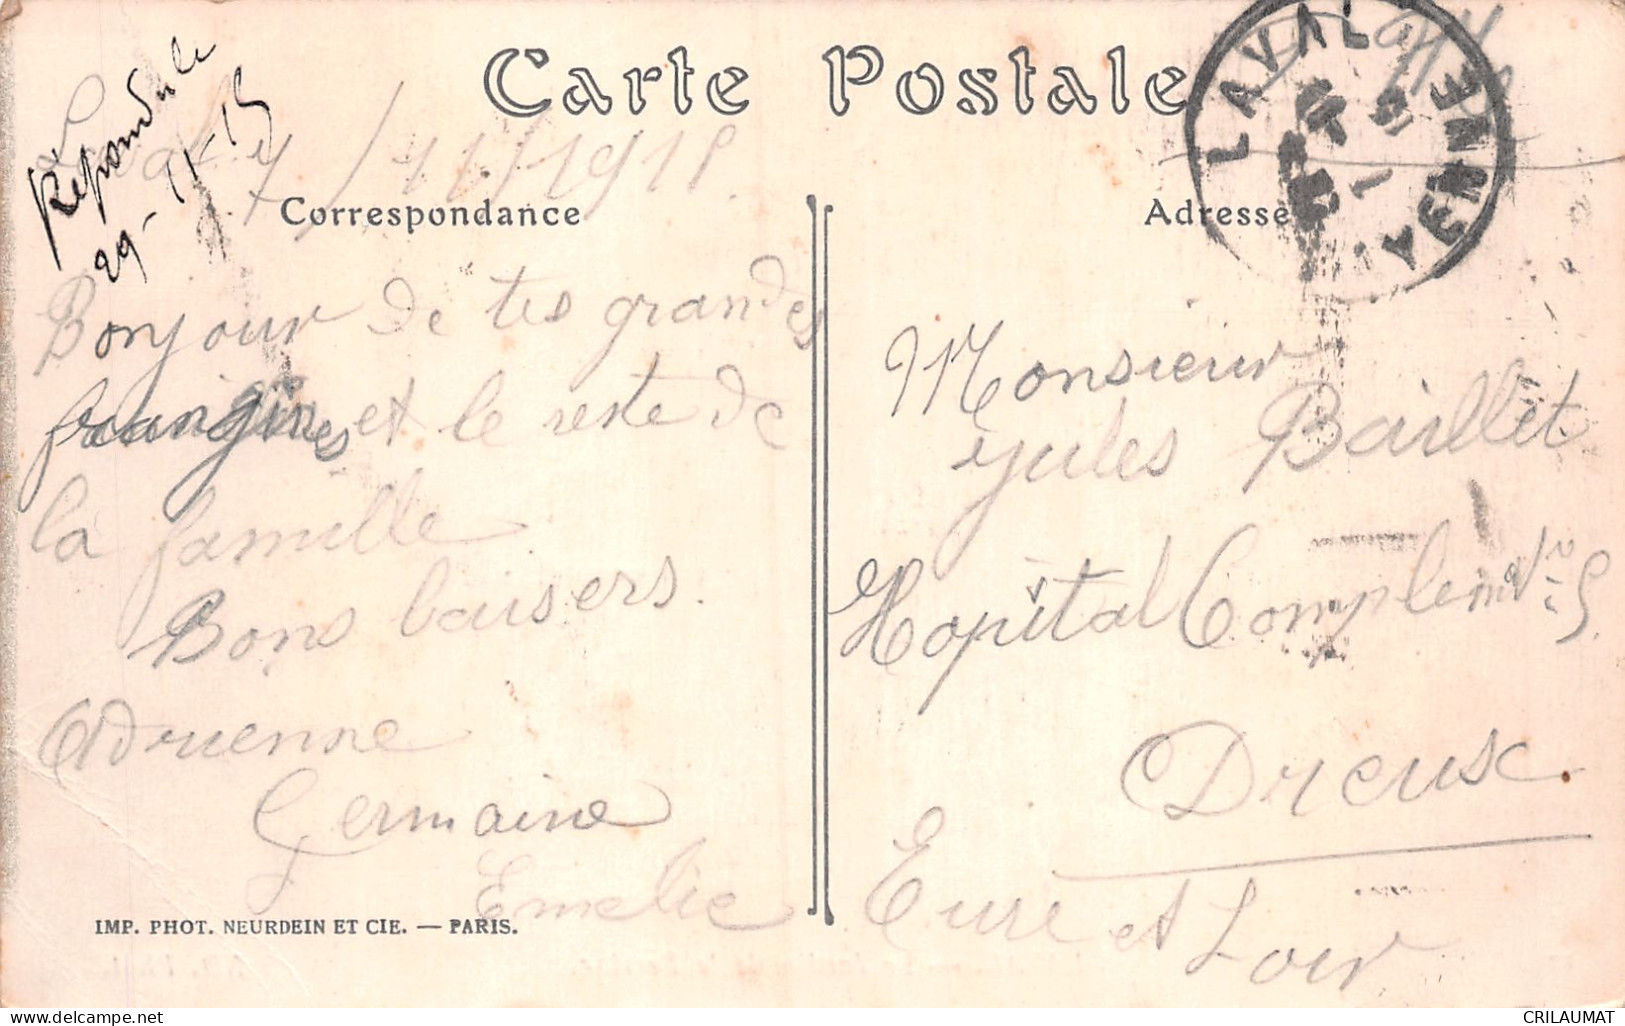 Carte Postale
Repondu le
29-11-15
/11/191
Correspondance
Adresse
LAVAL
MAYENNE
Bonjour de tes grandes
frangines et le reste de
la famille
Bons baisers.
Adrienne
Germaine
Emelie
Monsieur
Jules Baillet
Hopital Complem
Dreux.
Eure et Loir
IMP. PHOT. NEURDEIN ET CIE. — PARIS.
CRILAUMAT